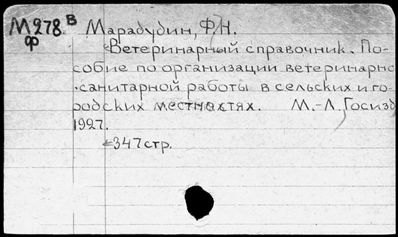 М278 В Марабудин, Ф.Н.
ф Ветеринарный справочник. По-
собие по организации ветеринарно
-санитарной работы в сельских и го-
родских местностях. М.-Л. Госизд
1927.
347 стр.